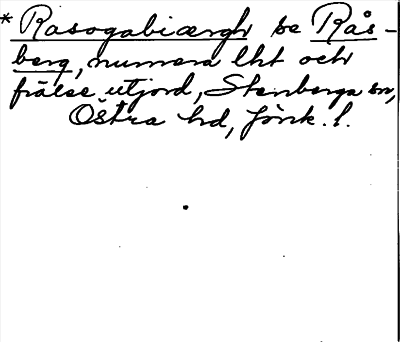 * Rasogabiærgh se Rås-
berg, numera lht och
frälse utjord, Stenberga sn,
Östra hd, Jönk. l.